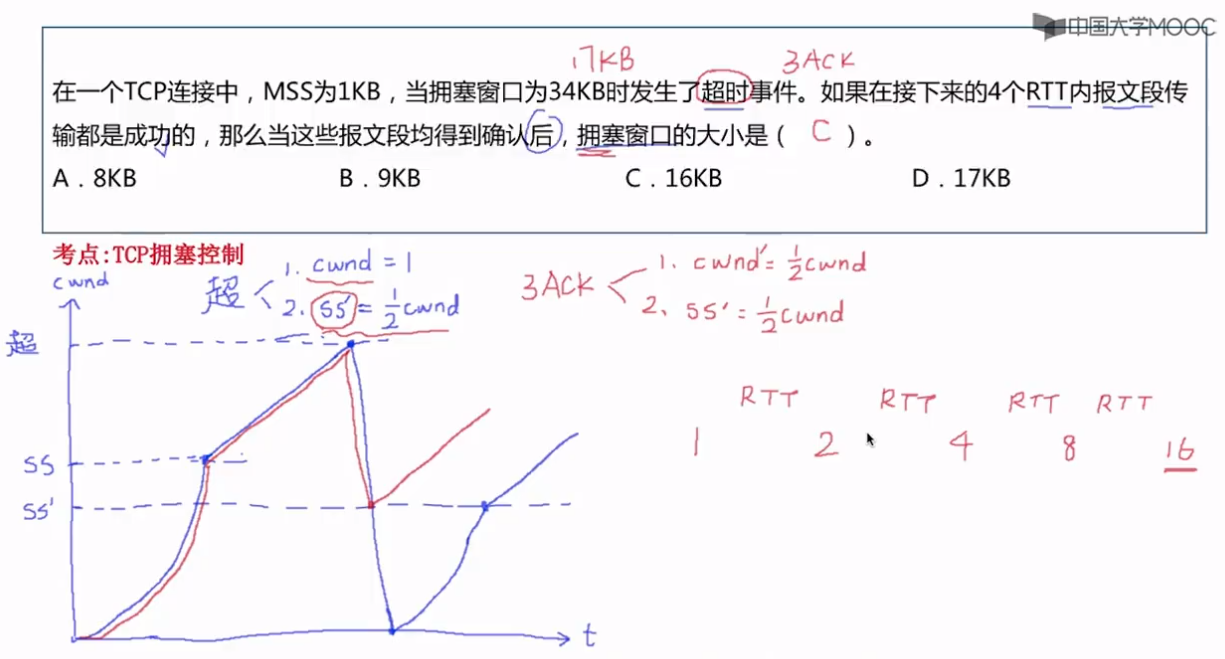 中国大学MOOC
17KB 3ACK
在一个TCP连接中，MSS为1KB，当拥塞窗口为34KB时发生了超时事件。如果在接下来的4个RTT内报文段传
输都是成功的，那么当这些报文段均得到确认后，拥塞窗口的大小是（ C ）。
A．8KB B．9KB C．16KB D．17KB
考点:TCP拥塞控制
cwnd
超 1. cwnd = 1
2. ss' = 1/2 cwnd
3ACK 1. cwnd' = 1/2 cwnd
2. ss' = 1/2 cwnd
超
RTT RTT RTT RTT
1 2 4 8 16
ss
ss'
t